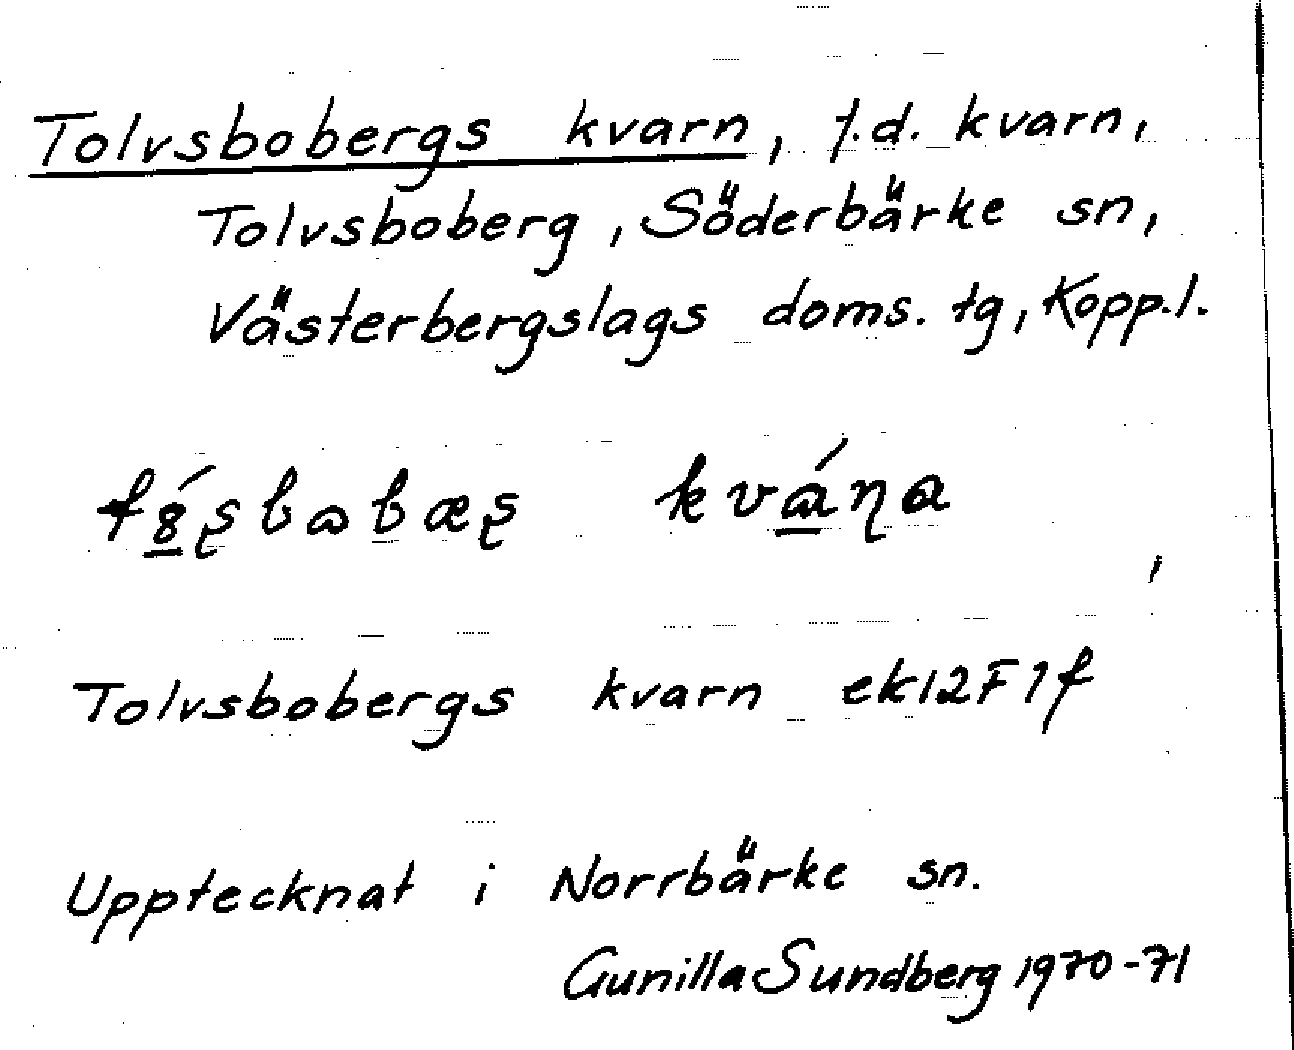 Tolvsbobergs kvarn, f.d. kvarn,
Tolvsboberg, Söderbärke sn,
Västerbergslags doms. tg, Kopp.l.
Tolvsbobergs kvarn ek12F7f
Upptecknat i Norrbärke sn.
Gunilla Sundberg 1970-71